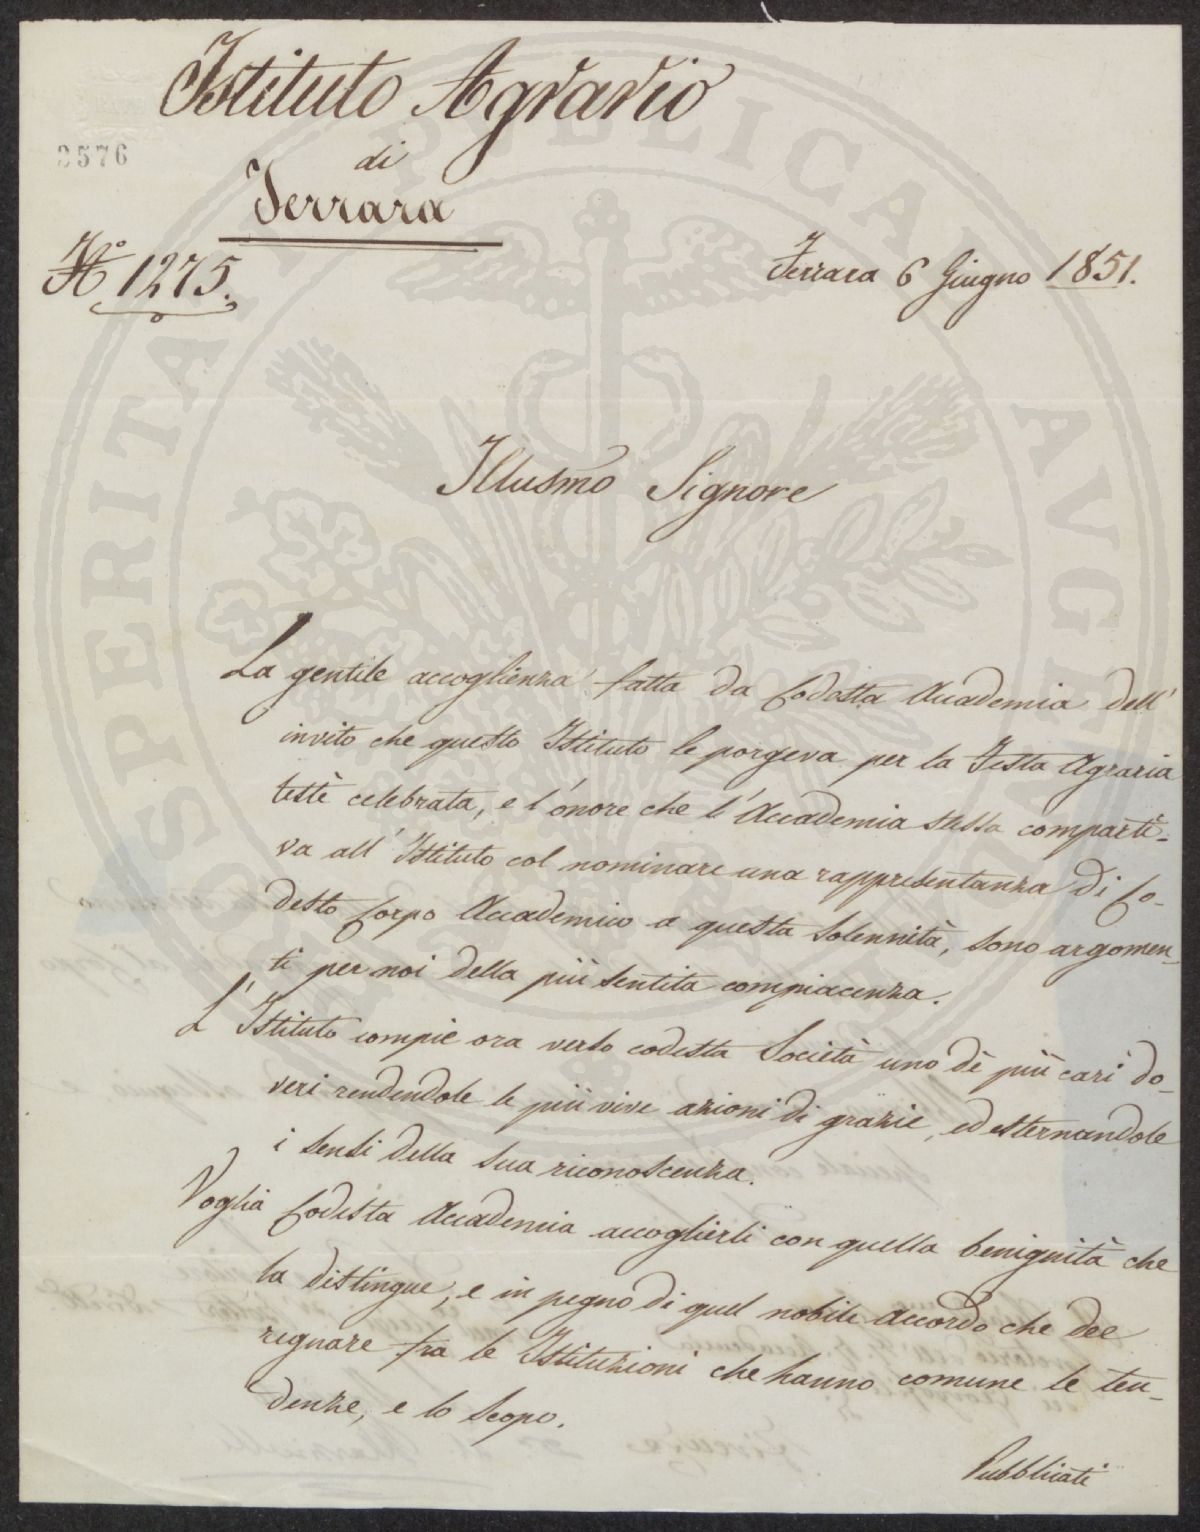 Istituto Agrario
di
Ferrara
3576
N.° 1275.
Ferrara 6 Giugno 1851.
Illusmo Signore
La gentile accoglienza fatta da Codesta Accademia dell'
invito che questo Istituto le porgeva per la Festa Agraria
testè celebrata, e l'onore che l'Accademia stessa comparti-
va all'Istituto col nominare una rappresentanza di Co-
desto Corpo Accademico a questa Solennità, sono argomen-
ti per noi della più sentita compiacenza.
L'Istituto compie ora verso codesta Società uno dè più cari do-
veri rendendole le più vive azioni di grazie, ed esternandole
i sensi della sua riconoscenza.
Voglia Codesta Accademia accoglierli con quella benignità che
la distingue, e in pegno di quel nobile accordo che dee
regnare fra le Istituzioni che hanno comune le ten-
denze, e lo scopo.
Pubblicati
PROSPERITATI PUBLICAE AVGENDAE